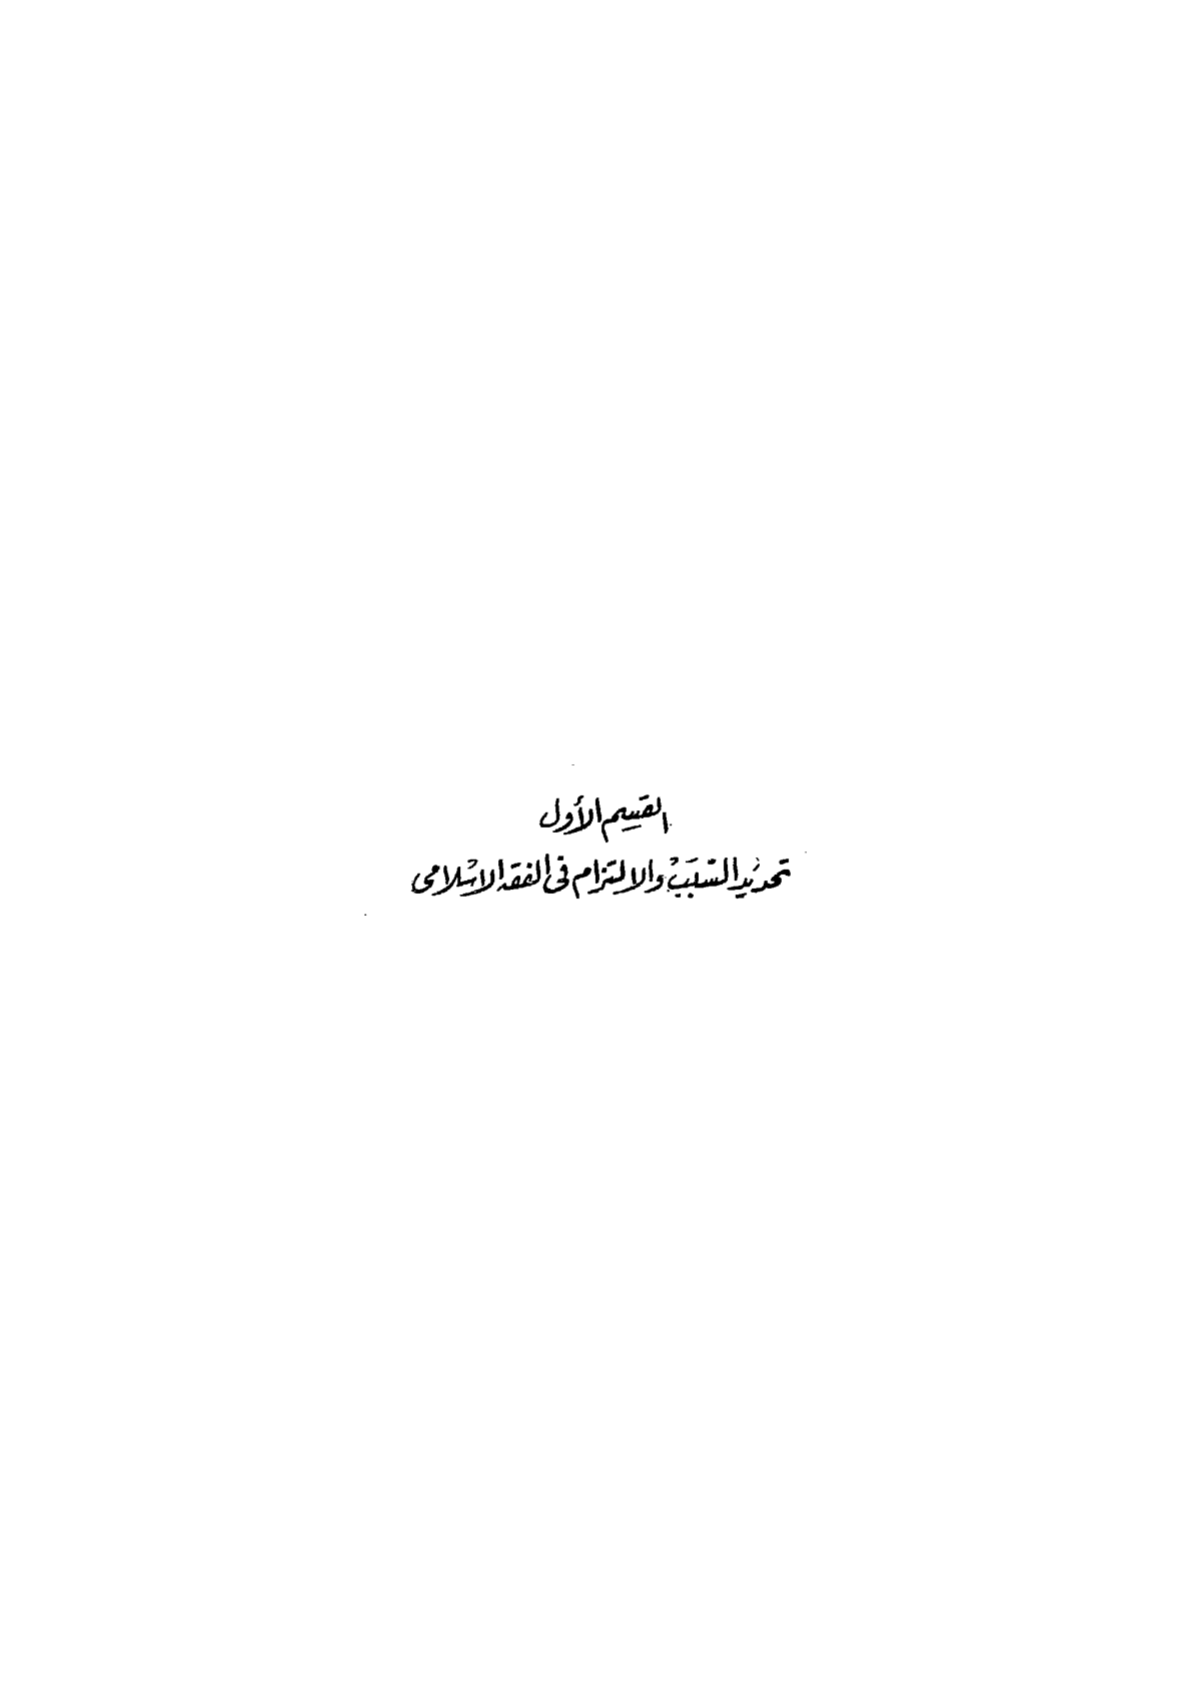 القسم الأول
تحديد السبب والالتزام فى الفقه الاسلامى